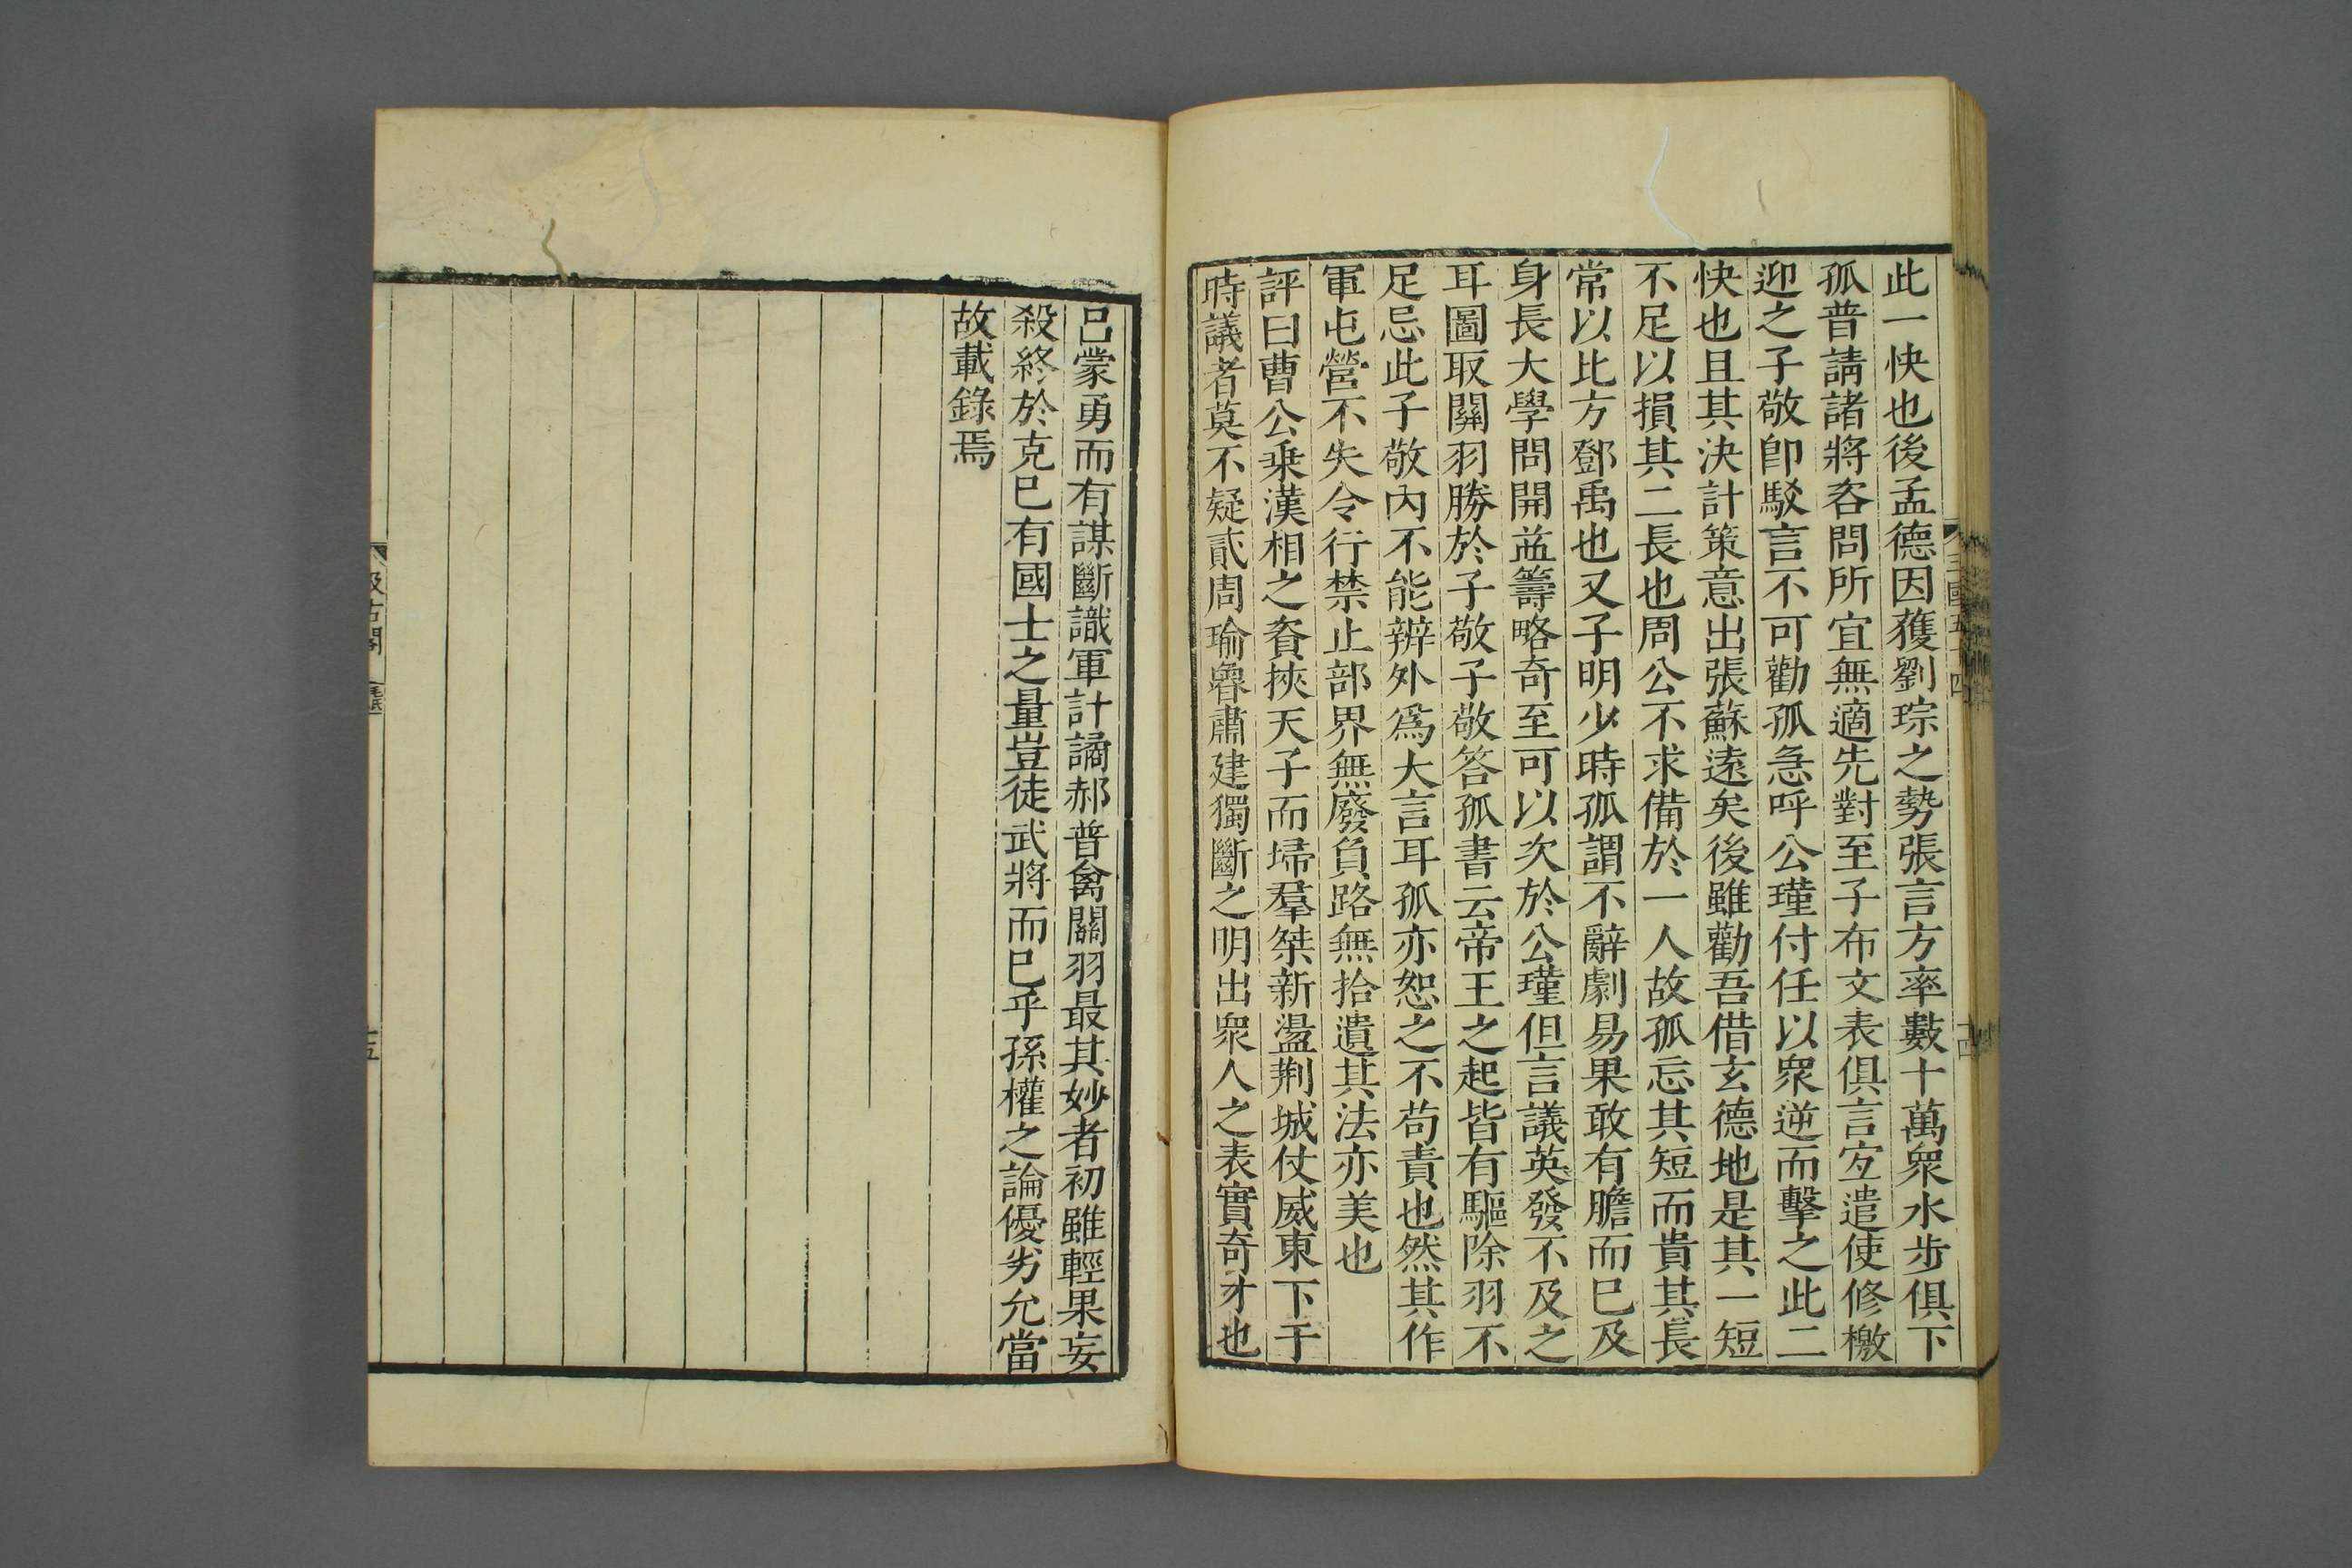 此一快也後孟德因獲劉琮之勢張言方率數十萬衆水步俱下
孤普請諸將咨問所宜無適先對至子布文表俱言宐遣使修檄
迎之子敬卽駁言不可勸孤急呼公瑾付任以衆逆而擊之此二
快也且其決計策意出張蘇遠矣後雖勸吾借玄德地是其一短
不足以損其二長也周公不求備於一人故孤忘其短而貴其長
常以比方鄧禹也又子明少時孤謂不辭劇易果敢有膽而已及
身長大學問開益籌略奇至可以次於公瑾但言議英發不及之
耳圖取關羽勝於子敬子敬答孤書云帝王之起皆有驅除羽不
足忌此子敬內不能辨外爲大言耳孤亦恕之不苟責也然其作
軍屯營不失令行禁止部界無廢負路無拾遺其法亦美也
評曰曹公乗漢相之資挾天子而埽羣桀新盪荆城仗威東下于
時議者莫不疑貳周瑜魯肅建獨斷之明出衆人之表實奇才也
三國五十四
十四
呂蒙勇而有謀斷識軍計譎郝普禽關羽最其妙者初雖輕果妄
殺終於克已有國士之量豈徒武將而已乎孫權之論優劣允當
故載錄焉
汲古閣
毛氏
十五